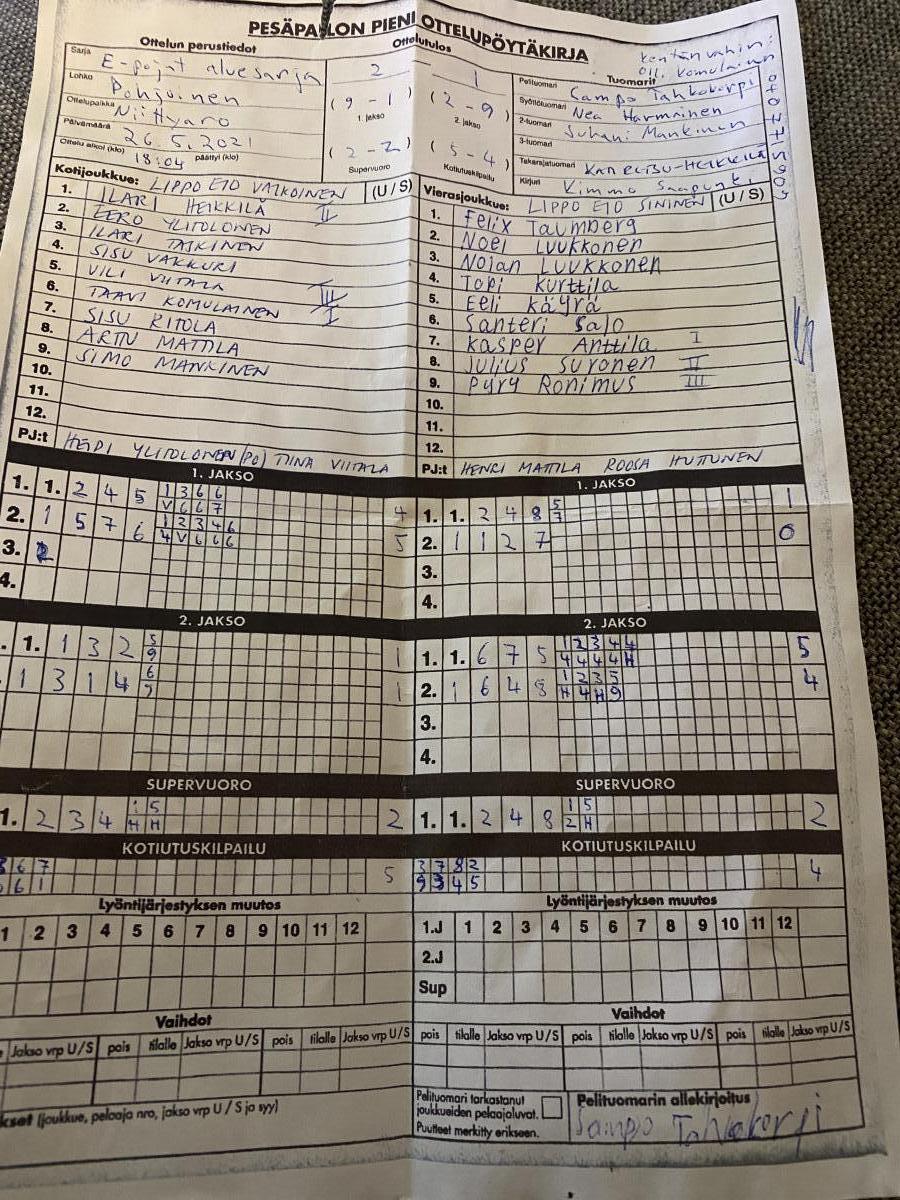 PESÄPALLON PIENI OTTELUPÖYTÄKIRJA
Ottelun perustiedot
Sarja E-pojat aluesarja
Lohko Pohjoinen
Ottelupaikka Niittyaro
Päivämäärä 26.5.2021
Ottelu alkoi (klo) 18:04 päättyi (klo)
Ottelutulos
2 - 1
(9 - 1) 1. jakso
(2 - 9) 2. jakso
(2 - 2) Supervuoro
(5 - 4) Kotiutuskilpailu
Kentänvahin:
Olli Komulainen
Tuomarit
Pelituomari Sampo Tahkokorpi
Syöttötuomari Nea Harmninen
2-tuomari Juhani Mankinen
3-tuomari
Takarajatuomari
Kirjuri Kimmo
Kotijoukkue: LIPPO E10 VALKOINEN (U / S)
1. ILARI HEIKKILÄ II
2. EERO YLITOLONEN
3. ILARI TAIKINEN
4. SISU VAKKURI
5. VILI VIITALA
6. TAAVI KOMULAINEN I
7. SISU RITOLA
8. ARTU MATTILA
9. SIMO MANKINEN
10.
11.
12.
PJ:t HEIDI YLITOLONEN (PO) TIINA VIITALA
Vierasjoukkue: LIPPO E10 SININEN (U / S)
1. Felix Taumberg
2. Noel Luukkonen
3. Nojan Luukkonen
4. Topi Kurttila
5. Eeli Käyrä
6. Santeri Salo
7. Kasper Anttila I
8. Julius Suronen II
9. Pyry Ronimus III
10.
11.
12.
PJ:t HENRI MATTILA ROOSA HUTTUNEN
1. JAKSO
1. 1. 2 4 5 1 3 6 6 4
V 6 6 7
2. 1 5 7 6 1 2 3 4 6 5
4 V 6 6 6
3. 2
4.
1. JAKSO
1. 1. 2 4 8 5 1
7
2. 1 1 2 7 0
3.
4.
2. JAKSO
1. 1 3 2 5 1
9
1 3 1 4 6 1
9
2. JAKSO
1. 1. 6 7 5 1 2 3 4 4 5
4 4 4 4 H
2. 1 6 4 8 1 2 3 5 4
H 4 H 9
3.
4.
SUPERVUORO
1. 2 3 4 1 5 2
H H
SUPERVUORO
1. 1. 2 4 8 1 5 2
2 H
KOTIUTUSKILPAILU
6 7 5
6 1
KOTIUTUSKILPAILU
3 7 8 2 4
9 3 4 5
Lyöntijärjestyksen muutos
1 2 3 4 5 6 7 8 9 10 11 12
Lyöntijärjestyksen muutos
1.J 1 2 3 4 5 6 7 8 9 10 11 12
2.J
Sup
Vaihdot
Jakso vrp U/S pois tilalle Jakso vrp U/S pois tilalle Jakso vrp U/S
Vaihdot
pois tilalle Jakso vrp U/S pois tilalle Jakso vrp U/S pois tilalle Jakso vrp U/S
(joukkue, pelaaja nro, jakso vrp U / S ja syy)
Pelituomari tarkastanut
joukkueiden pelaajaluvat.
Puutteet merkitty erikseen.
Pelituomarin allekirjoitus
Sampo Tahkokorpi